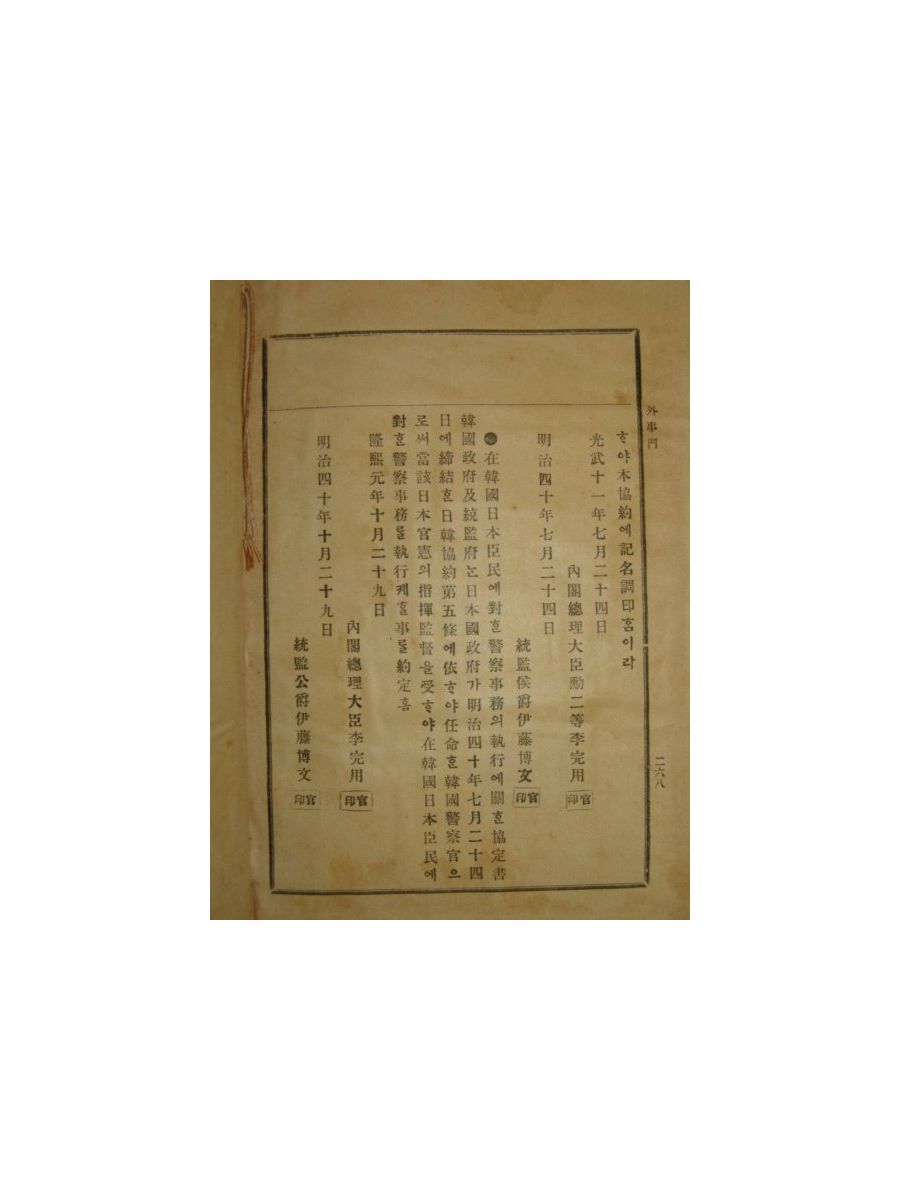 外事門
二六八
ᄒᆞ야本協約에記名調印홈이라
光武十一年七月二十四日
內閣總理大臣勳二等李完用
官印
明治四十年七月二十四日
統監侯爵伊藤博文
官印
在韓國日本臣民에對ᄒᆞᆫ警察事務의執行에關ᄒᆞᆫ協定書
韓國政府及統監府ᄂᆞᆫ日本國政府가明治四十年七月二十四
日에締結ᄒᆞᆫ日韓協約第五條에依ᄒᆞ야任命ᄒᆞᆫ韓國警察官으
로써當該日本官憲의指揮監督을受ᄒᆞ야在韓國日本臣民에
對ᄒᆞᆫ警察事務ᄅᆞᆯ執行케ᄒᆞᆯ事ᄅᆞᆯ約定홈
隆熙元年十月二十九日
內閣總理大臣李完用
官印
明治四十年十月二十九日
統監公爵伊藤博文
官印